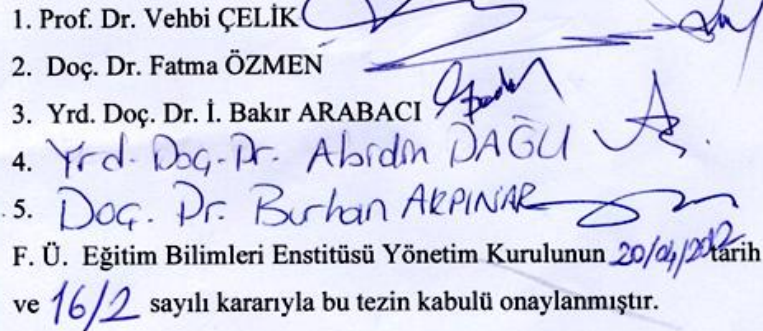 1. Prof. Dr. Vehbi ÇELİK
2. Doç. Dr. Fatma ÖZMEN
3. Yrd. Doç. Dr. İ. Bakır ARABACI
4. Yrd. Doç. Dr. Abidin DAĞLI
5. Doç. Dr. Burhan AKPINAR
F. Ü. Eğitim Bilimleri Enstitüsü Yönetim Kurulunun 20/04/2012 tarih
ve 16/2 sayılı kararıyla bu tezin kabulü onaylanmıştır.